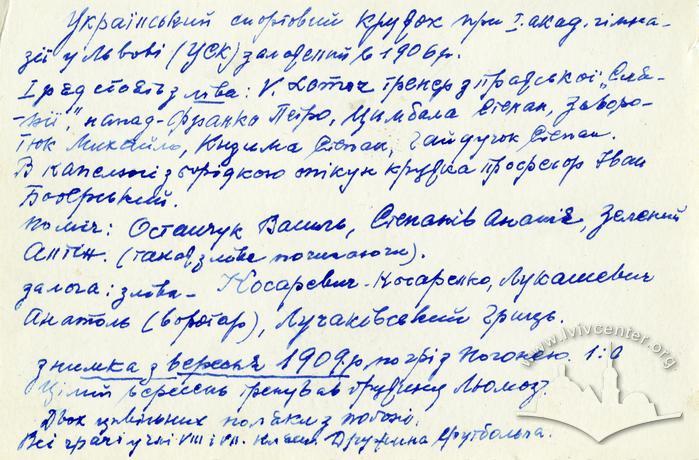 Український спортовий кружок при І. акад. гімна-
зії у Львові (УСК) заложений в 1906 р.
І ряд стоять зліва: V. тренер з празької „Сла-
вії", напад - Франко Петро, Цимбала Степан, Заворо-
тюк Михайло, Кизима Степан, Гайдучок Степан.
В капелюсі з борідкою опікун кружка професор Іван
Боберський.
поміч: Остапчук Василь, Степанів Ананій, Зелений
Антін. (також зліва починаючи).
залога: зліва - Косаревич - Косаренко, Лукашевич
Анатоль (воротар), Лучаківський Гриць.
знимка з вересня 1909. р. по грі з Погонею. 1:0
Цілий вересень тренував дружину
Двох цивільних поляки з погоні.
Всі грачі учні VIII і VII. класи Дружина футбольна.
www.lvivcenter.org